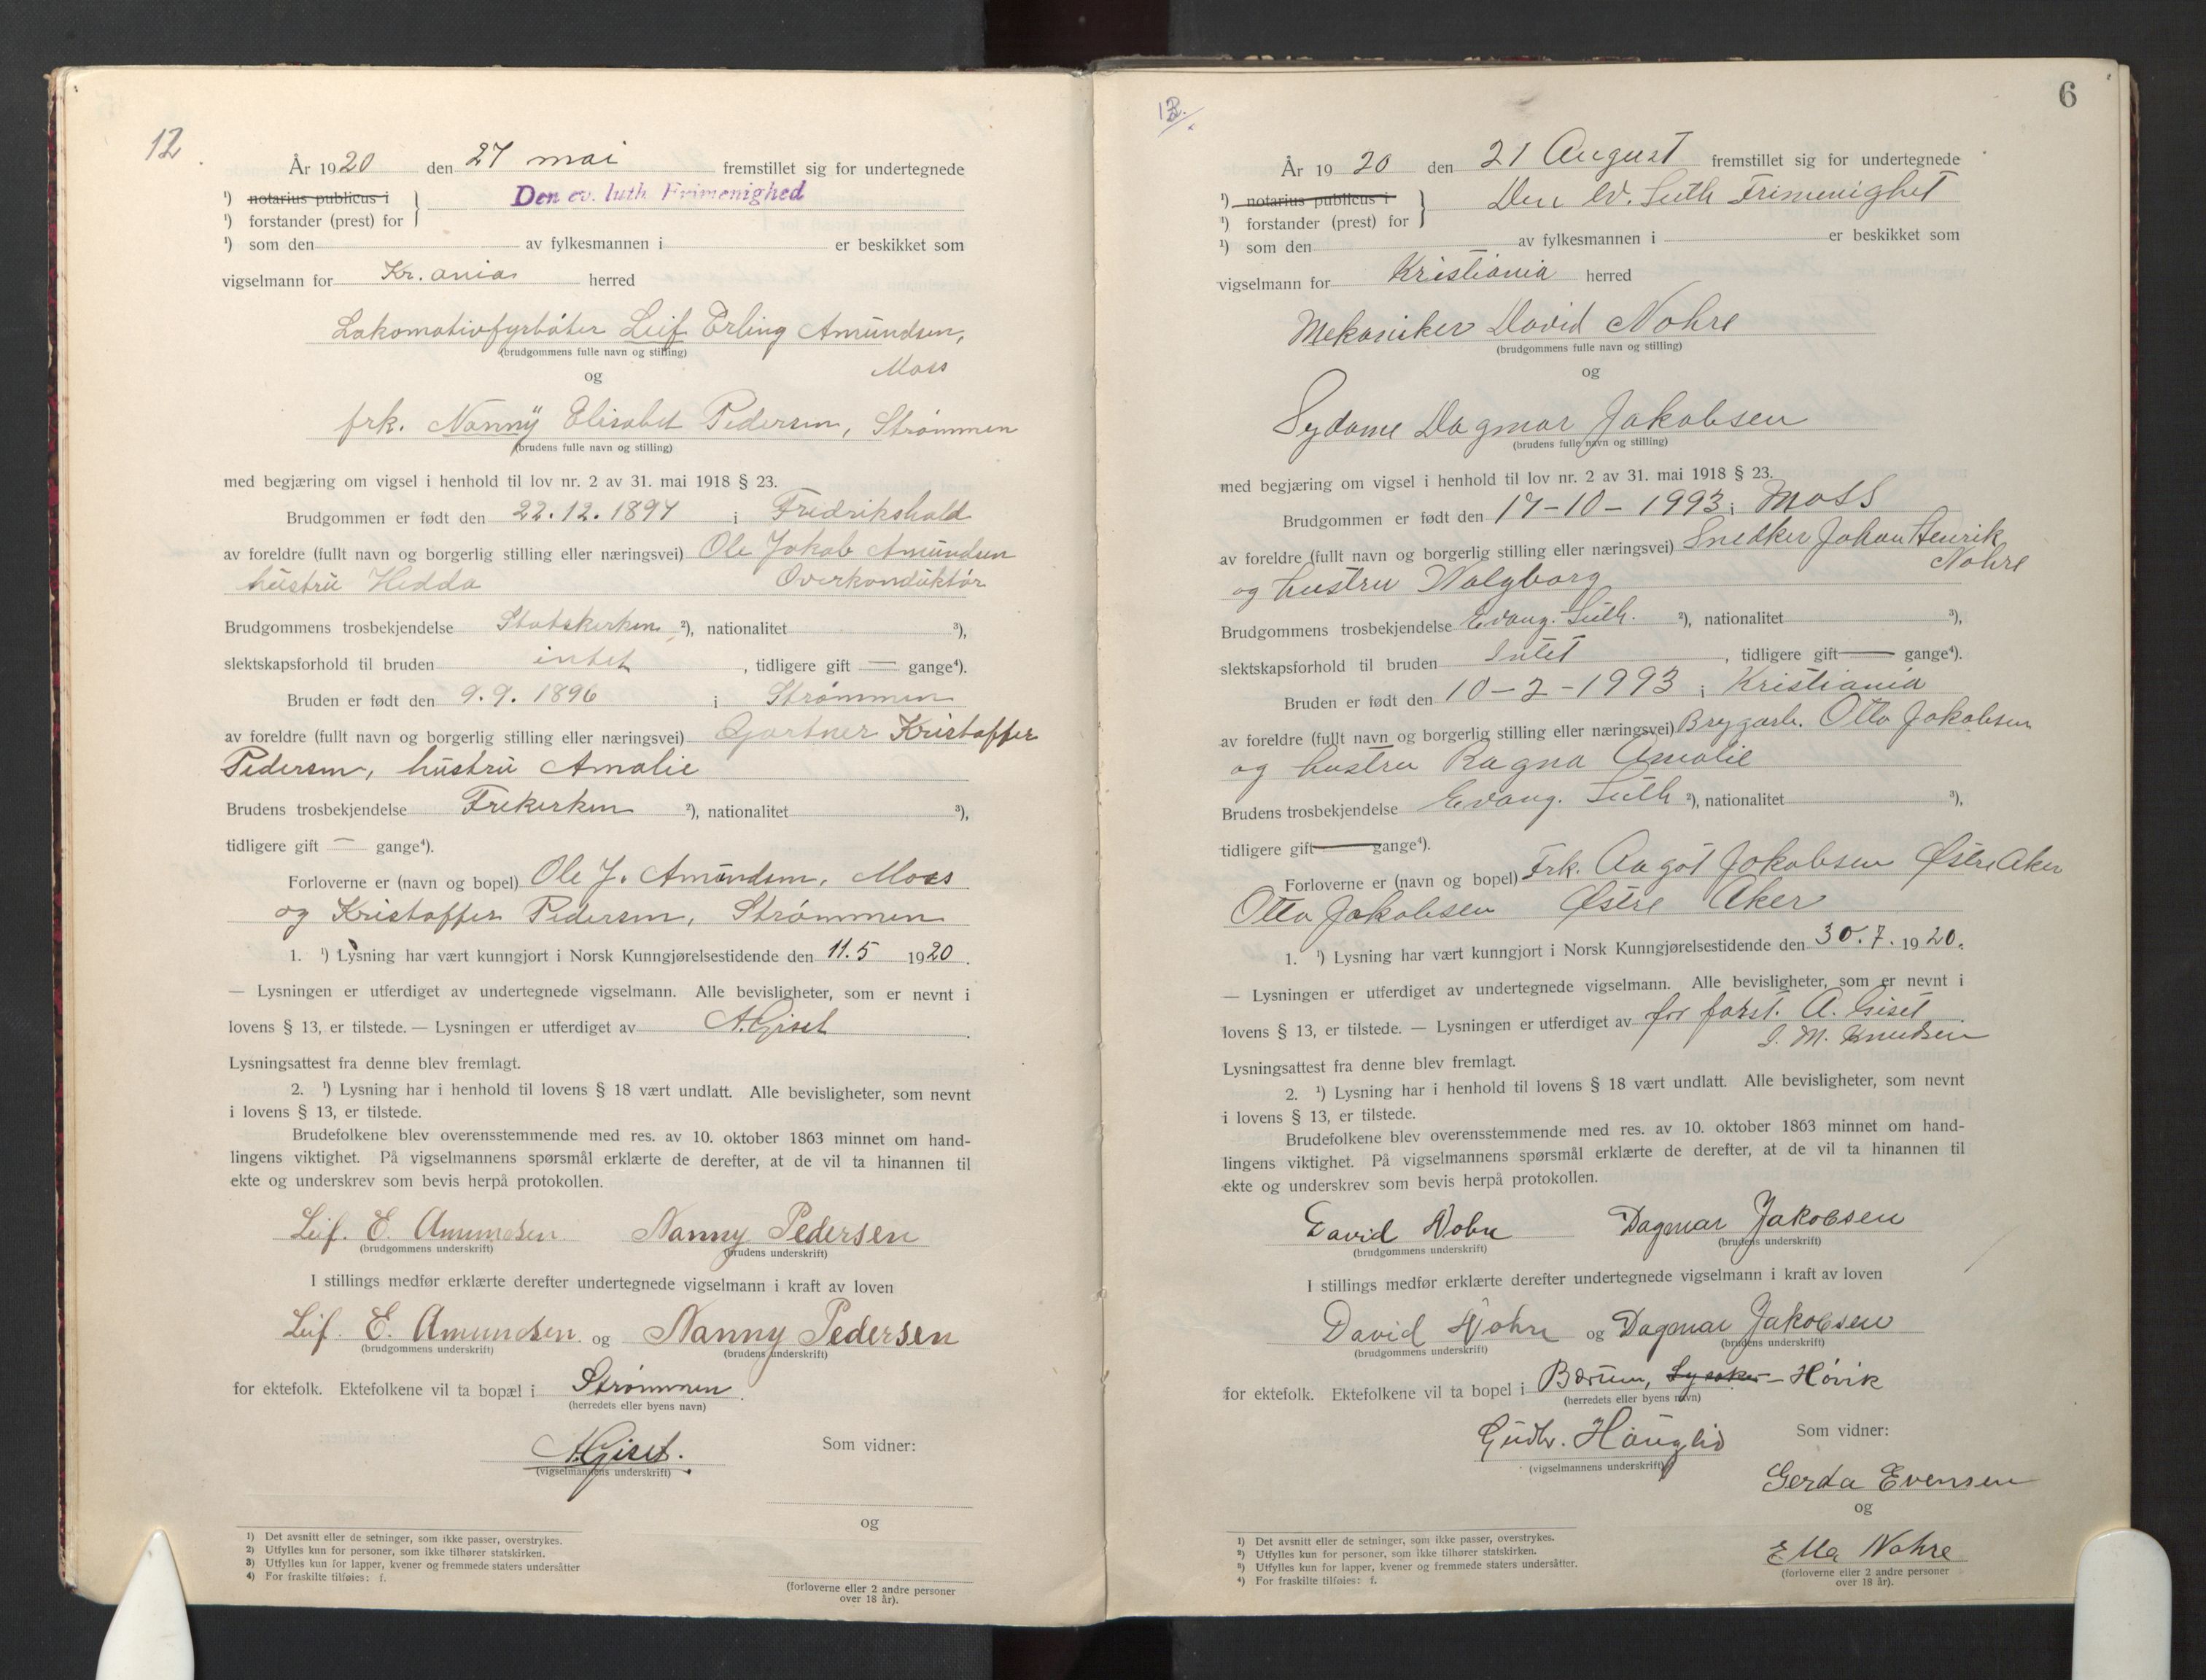 12
År 1920 den 27 mai fremstillet sig for undertegnede
¹) notarius publicus i
Den ev. luth Frimenighed
¹) forstander (prest) for
¹) som den av fylkesmannen i er beskikket som
vigselmann for Kr.ania herred
Lokomotivfyrbøter Leif Erling Amundsen,
(brudgommens fulle navn og stilling)
Moss
og
frk. Nanny Elisabet Pedersen, Strømmen
(brudens fulle navn og stilling)
med begjæring om vigsel i henhold til lov nr. 2 av 31. mai 1918 § 23.
Brudgommen er født den 22.12.1897 i Fredrikshald
av foreldre (fullt navn og borgerlig stilling eller næringsvei) Ole Jakob Amundsen
hustru Hedda Overkonduktør
Brudgommens trosbekjendelse Statskirken ²), nationalitet ³),
slektskapsforhold til bruden intet, tidligere gift — gange⁴).
Bruden er født den 9.9.1896 i Strømmen
av foreldre (fullt navn og borgerlig stilling eller næringsvei) Gartner Kristoffer
Pedersen, hustru Amalie
Brudens trosbekjendelse Frikirken ²), nationalitet ³),
tidligere gift — gange⁴).
Forloverne er (navn og bopel) Ole J. Amundsen, Moss
og Kristoffer Pedersen, Strømmen
1. ¹) Lysning har vært kunngjort i Norsk Kunngjørelsestidende den 11.5 1920.
— Lysningen er utferdiget av undertegnede vigselmann. Alle bevisligheter, som er nevnt i
lovens § 13, er tilstede. — Lysningen er utferdiget av A. Giset.
Lysningsattest fra denne blev fremlagt.
2. ¹) Lysning har i henhold til lovens § 18 vært undlatt. Alle bevisligheter, som nevnt
i lovens § 13, er tilstede.
Brudefolkene blev overensstemmende med res. av 10. oktober 1863 minnet om hand-
lingens viktighet. På vigselmannens spørsmål erklærte de derefter, at de vil ta hinannen til
ekte og underskrev som bevis herpå protokollen.
Leif. E. Amundsen Nanny Pedersen
(brudgommens underskrift) (brudens underskrift)
I stillings medfør erklærte derefter undertegnede vigselmann i kraft av loven
Leif. E. Amundsen og Nanny Pedersen
(brudgommens underskrift) (brudens underskrift)
for ektefolk. Ektefolkene vil ta bopæl i Strømmen.
(herredets eller byens navn)
A. Giset.
(vigselmannens underskrift)
Som vidner:
og
(forloverne eller 2 andre personer
over 18 år).
1) Det avsnitt eller de setninger, som ikke passer, overstrykes.
2) Utfylles kun for personer, som ikke tilhører statskirken.
3) Utfylles kun for lapper, kvener og fremmede staters undersåtter
4) For fraskilte tilføies: f.
13.
6
År 1920 den 21 August fremstillet sig for undertegnede
¹) notarius publicus i
Den ev. Luth Frimenighet
¹) forstander (prest) for
¹) som den av fylkesmannen i er beskikket som
vigselmann for Kristiania herred
Mekaniker David Nohre
(brudgommens fulle navn og stilling)
og
Sydame Dagmar Jakobsen
(brudens fulle navn og stilling)
med begjæring om vigsel i henhold til lov nr. 2 av 31. mai 1918 § 23.
Brudgommen er født den 17-10-1993 i Moss
av foreldre (fullt navn og borgerlig stilling eller næringsvei) Snedker Johan Henrik
Nohre
og hustru Walgborg
Brudgommens trosbekjendelse Evang. Luth. ²), nationalitet ³),
slektskapsforhold til bruden Intet, tidligere gift — gange⁴).
Bruden er født den 10-2-1993 i Kristiania
av foreldre (fullt navn og borgerlig stilling eller næringsvei) Brygarb. Otto Jakobsen
og hustru Ragna Amalie
Brudens trosbekjendelse Evang. Luth ²), nationalitet ³),
tidligere gift — gange⁴).
Forloverne er (navn og bopel) Frk. Aagot Jakobsen Østre Aker
Otto Jakobsen Østre Aker
1. ¹) Lysning har vært kunngjort i Norsk Kunngjørelsestidende den 30.7.1920.
— Lysningen er utferdiget av undertegnede vigselmann. Alle bevisligheter, som er nevnt i
lovens § 13, er tilstede. — Lysningen er utferdiget av for forst. A. Giset.
M. Knudsen
Lysningsattest fra denne blev fremlagt.
2. ¹) Lysning har i henhold til lovens § 18 vært undlatt. Alle bevisligheter, som nevnt
i lovens § 13, er tilstede.
Brudefolkene blev overensstemmende med res. av 10. oktober 1863 minnet om hand-
lingens viktighet. På vigselmannens spørsmål erklærte de derefter, at de vil ta hinannen til
ekte og underskrev som bevis herpå protokollen.
David Nohre Dagmar Jakobsen
(brudgommens underskrift) (brudens underskrift)
I stillings medfør erklærte derefter undertegnede vigselmann i kraft av loven
David Nohre og Dagmar Jakobsen
(brudgommens underskrift) (brudens underskrift)
for ektefolk. Ektefolkene vil ta bopel i Bærum, Lysaker - Høvik
(herredets eller byens navn)
Gudbr. Hauglid
(vigselmannens underskrift)
Som vidner:
Gerda Evensen
og
Ella Nohre
(forloverne eller 2 andre personer
over 18 år).
1) Det avsnitt eller de setninger, som ikke passer, overstrykes.
2) Utfylles kun for personer, som ikke tilhører statskirken.
3) Utfylles kun for lapper, kvener og fremmede staters undersåtter.
4) For fraskilte tilføies: f.